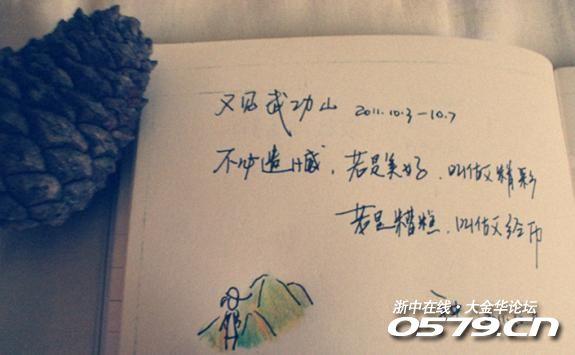 又见武功山 2011.10.3—10.7
不必遗憾，若是美好，叫做精彩
若是糟糕，叫做经历
浙中在线·大金华论坛
0579.cn